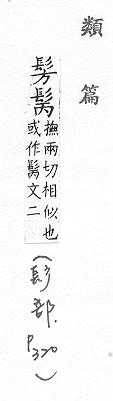 類篇
髣髴撫兩切相似也
或作髴文二
（髟部．P320）